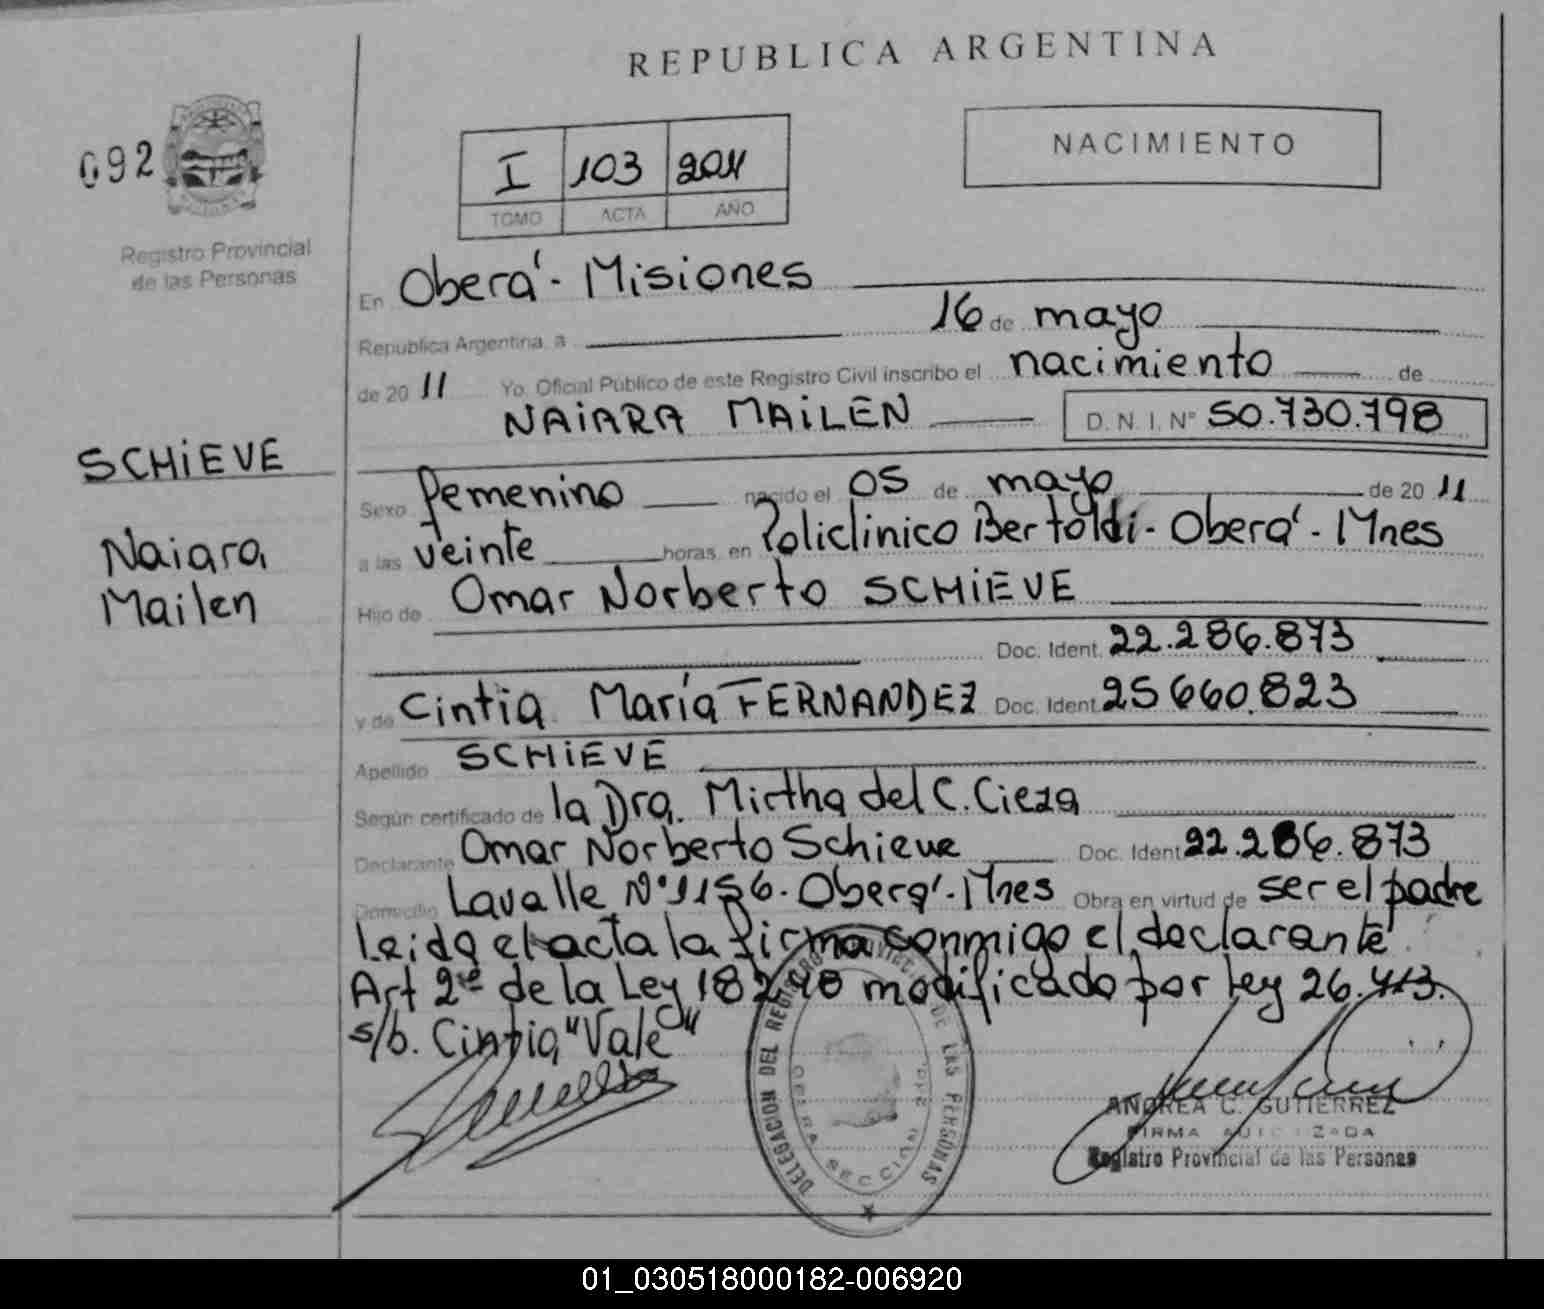 REPUBLICA ARGENTINA
NACIMIENTO
092
I 103 2011
TOMO ACTA AÑO
Registro Provincial
de las Personas
En Oberá - Misiones
Republica Argentina, a 16 de mayo
de 2011 Yo, Oficial Público de este Registro Civil inscribo el nacimiento de
NAIARA MAILEN D. N. I. Nº 50.730.798
SCHIEVE
Naiara
Mailen
Sexo femenino nacido el 05 de mayo de 2011
a las veinte horas, en Policlinico Bertoldi - Oberá - Mnes
Hijo de Omar Norberto SCHIEVE
Doc. Ident. 22.286.873
y de Cintia María FERNANDEZ Doc. Ident. 25660.823
Apellido SCHIEVE
Según certificado de la Dra. Mirtha del C. Cieza
Declarante Omar Norberto Schieve Doc. Ident. 22.286.873
Domicilio Lavalle Nº 1156. Oberá - Mnes Obra en virtud de ser el padre
Leida el acta la firma conmigo el declarante
Art 2º de la Ley 18248 modificado por Ley 26.413.
s/b. Cintia "Vale"
DELEGACION DEL REGISTRO DE LAS PERSONAS
OBERA SECCION 2da.
ANDREA C. GUTIERREZ
FIRMA AUTORIZADA
Registro Provincial de las Personas
01_030518000182-006920